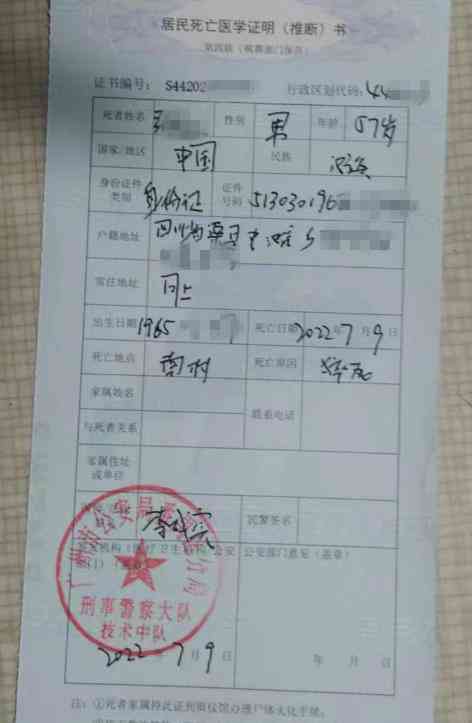 居民死亡医学证明（推断）书
第四联（殡葬部门保存）
证书编号：S44202 行政区划代码：44
死者姓名 性别 男 年龄 57岁
国家/地区 中国 民族 汉族
身份证件类别 身份证 证件号码 513030196
户籍地址 四川省渠县
常住地址 同上
出生日期 1965 死亡日期 2022年7月9日
死亡地点 南村 死亡原因 猝死
家属姓名 联系电话
与死者关系
家属住址或单位
民警签名
公安部门意见（盖章）
广州市公安局 分局
刑事警察大队
技术中队
2022-7月9日 年 月 日
注：①死者家属持此证到殡仪馆办理尸体火化手续。